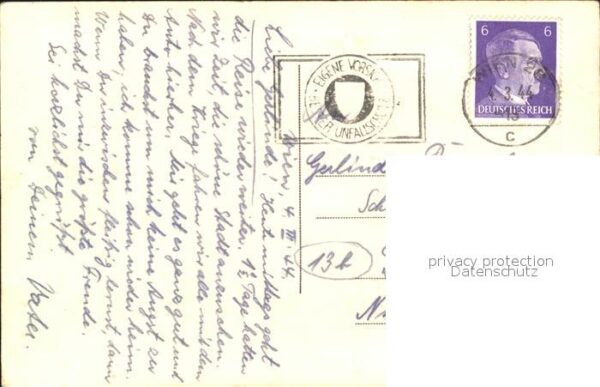 Wien, 4. III. 44.
Liebe Gerlinde! Heut mittags geht
die Reise wieder weiter. 1½ Tage hatten
wir Zeit, die schöne Stadt anzuschauen.
Nach dem Krieg fahren wir alle mit dem
Auto hierher. Mir geht es ganz gut und
Du brauchst um mich keine Angst zu
haben, ich komme schon wieder heim.
Wenn Du inzwischen fleißig lernst, dann
machst Du mir die größte Freude.
Sei herzlichst gegrüßt
von Deinem Vater.
EIGENE VORSICHT
UNFALLSCHUTZ
6 6
DEUTSCHES REICH
WIEN
4.3.44
c
Gerlinde
Sch
13b
N
privacy protection
Datenschutz